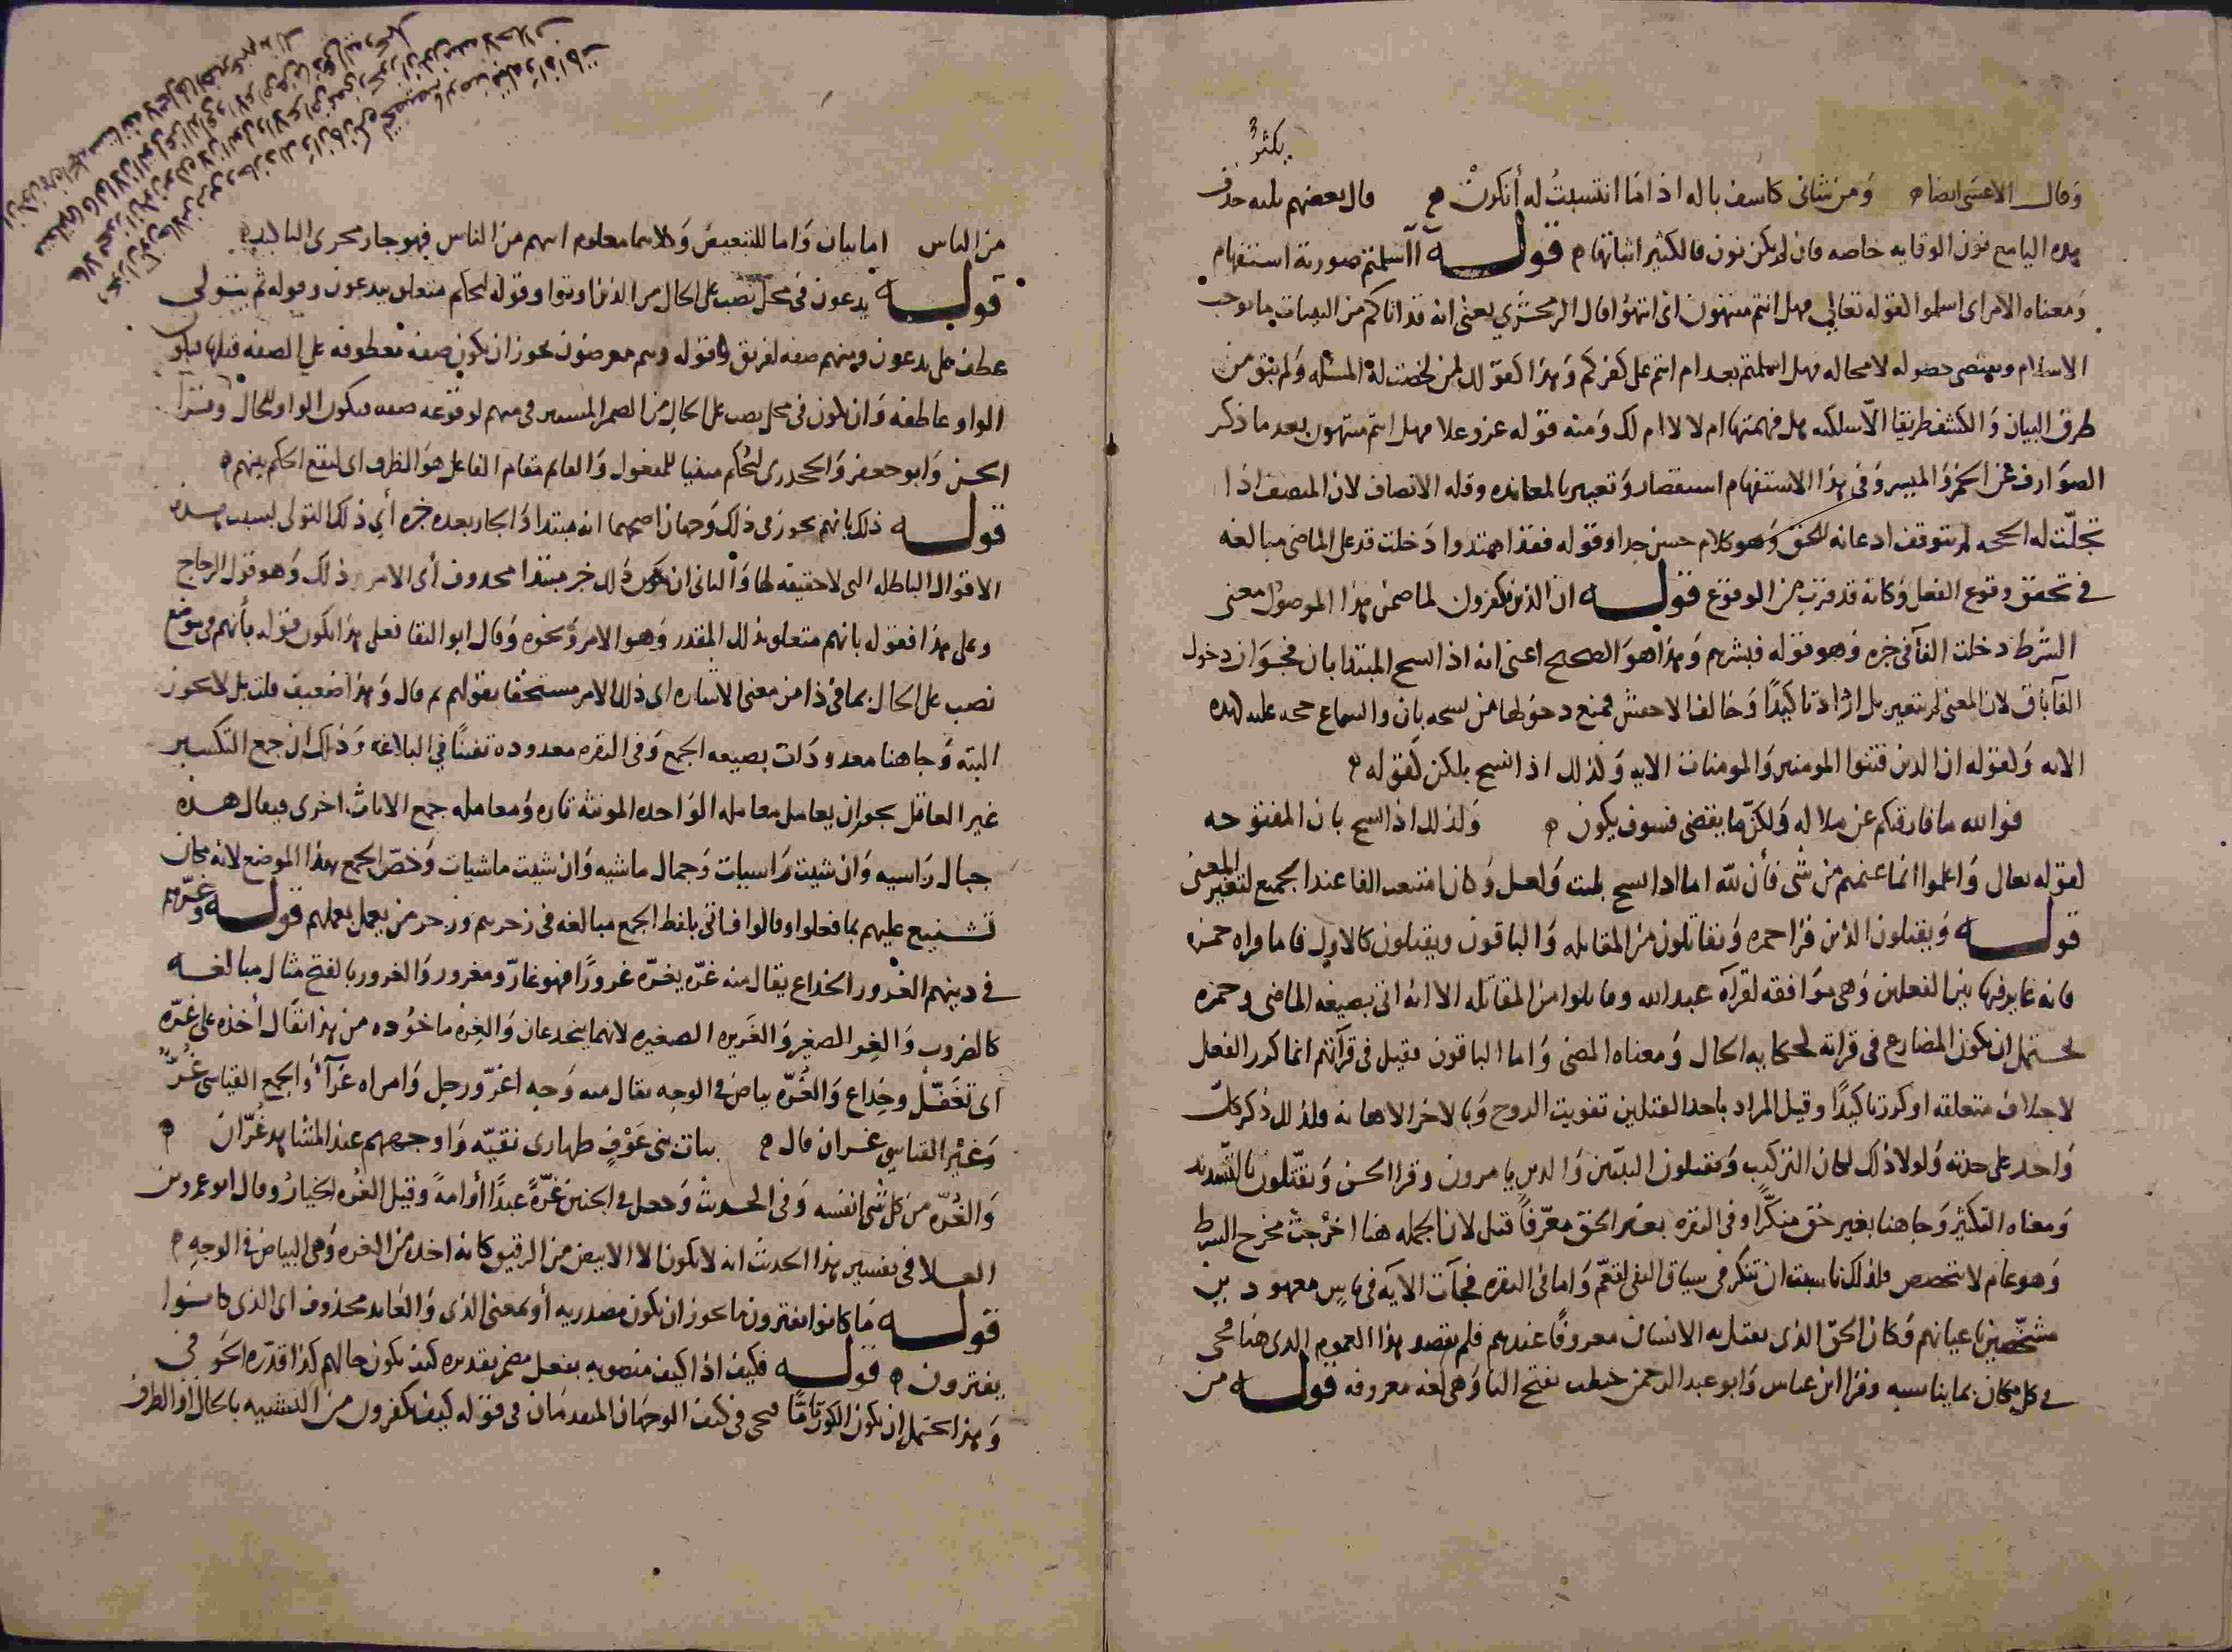 يكثر
وقال الاعشى ايضا ومن شانئ كاسف باله اذا ما انتسبت له أنكرن قال بعضهم حذف
هذه اليا مع نون الوقايه خاصه فان لم يكن نون فالكثير اثباتها قوله أأسلمتم صورته استفهام
ومعناه الامر اى اسلموا لقوله تعالى فهل انتم منتهون اى انتهوا قال الزمخشري يعنى انه قد اتاكم من البينات ما يوجب
الاسلام ويقتضى حصوله لا محاله فهل اسلمتم بعد ام انتم على كفركم وهذا كقولك لمن لخصت له المسئله ولم تبق من
طرق البيان والكشف طريقا الا سلكته هل فهمتها ام لا لا ام لك ومنه قوله عز وعلا فهل انتم منتهون بعد ما ذكر
الصوارف عن الخمر والميسر وفى هذا الاستفهام استقصار وتعيير بالمعانده وقله الانصاف لان المنصف اذا
تجلت له الحجه لم يتوقف اذعانه للحق وهو كلام حسن جدا وقوله فقد اهتدوا دخلت قد على الماضى مبالغه
في تحقق وقوع الفعل وكانه قد قرب من الوقوع قوله ان الذين يكفرون لما ضمن هذا الموصول معنى
الشرط دخلت الفآ فى خبره وهو قوله فبشرهم وهذا هو الصحيح اعنى انه اذا نسخ المبتدا بان فجواز دخول
الفآ باق لان المعنى لم يتغير بل ازداد تاكيدًا وخالف الاخفش فمنع دخولها من نسخه بان والسماع حجه عليه لهذه
الايه ولقوله ان الذين فتنوا المومنين والمومنات الايه ولذلك اذا نسخ بلكن كقوله
فوالله ما فارقتكم عن ملاله ولكن ما يقضى فسوف يكون ولذلك اذا نسخ بان المفتوحه
لقوله تعالى واعلموا انما غنمتم من شى فأن لله اما اذا نسخ بليت ولعل وكان امتنعت الفا عند الجميع لتغير المعنى
قوله ويقتلون الذين قرا حمزه ويقاتلون من المقاتله والباقون ويقتلون كالاول فاما قراه حمزه
فانه غاير فيها بين الفعلين وهى موافقه لقرآه عبد الله وقاتلوا من المقاتله الا انه اتى بصيغه الماضى وحمزه
يحتمل ان يكون المضارع فى قراته لحكايه الحال ومعناه المضى واما الباقون فقيل فى قرآتهم انما كرر الفعل
لاختلاف متعلقه او كرر تاكيدًا وقيل المراد باحد القتلين تفويت الروح وبالاخر الاهانه فلذلك ذكر كل
واحد على حدته ولولا ذلك لكان التركيب ويقتلون النبيين والذين يامرون وقرا الحسن ويقتّلون بالتشديد
ومعناه التكثير وجا هنا بغير حق منكّرًا وفى البقره بغير الحق معرّفًا قيل لان الجمله هنا اخرجت مخرج الشرط
وهو عام لا يتخصص فلذلك ناسبت ان تنكر فى سياق النفى لتعم واما فى البقره فجآت الايه فى ناس معهودين
مشخصين باعيانهم وكان الحق الذى يقتل به الانسان معروفًا عندهم فلم يقصد هذا العموم الذى هنا فجى
فى كل مكان بما يناسبه وقرا ابن عباس وابو عبد الرحمن حبطت بفتح البا وهى لغه معروفه قوله من
من الناس اما بيان واما للتبعيض وكلاهما معلوم انهم من الناس فهو جار مجرى التاكيد
قوله يدعون فى محل نصب على الحال من الذين اوتوا وقوله ليحكم متعلق بيدعون وقوله ثم يتولى
عطف على يدعون ومنهم صفه لفريق وقوله وهم معرضون يجوز ان يكون صفه معطوفه على الصفه قبلها فيكون
الواو عاطفه وان يكون فى محل نصب على الحال من الضمير المستتر فى منهم لوقوعه صفه فيكون الواو للحال وقرأ
الحسن وابو جعفر والجحدرى ليُحكم مبنيا للمفعول والقائم مقام الفاعل هو الظرف اى ليقع الحكم بينهم
قوله ذلك بانهم يجوز فى ذلك وجهان اصحهما انه مبتدا والجار بعده خبره أي ذلك التولى بسبب هذه
الاقوال الباطله التى لا حقيقه لها والثانى ان يكون ذلك خبر مبتدا محذوف أى الامر ذلك وهو قول الزجاج
وعلى هذا فقوله بانهم متعلق بذلك المقدر وهو الامر ونحوه وقال ابو البقا فعلى هذا يكون قوله بأنهم فى موضع
نصب على الحال بما فى ذا من معنى الاشاره اى ذلك الامر مستحقا بقولهم ثم قال وهذا ضعيف قلت بل لا يجوز
البته وجا هنا معدودات بصيغه الجمع وفى البقره معدوده تفننًا في البلاغه وذلك ان جمع التكسير
غير العاقل يجوز ان يعامل معامله الواحده المونثه تاره ومعامله جمع الاناث اخرى فيقال هذه
جبال راسيه وان شيت راسيات وجمال ماشيه وان شيت ماشيات وخصّ الجمع بهذا الموضع لانه مكان
تشنيع عليهم بما فعلوا وقالوا فاتى بلفظ الجمع مبالغه فى زجرهم وزجر من يعمل بعملهم قوله وغرّهم
في دينهم الغرور الخداع يقال منه غرّه يغرّه غرورًا فهو غارّ ومغرور والغرور بالفتح مثال مبالغه
كالضروب والغِر الصغير والغَريره الصغيره لانهما ينخدعان والغِره ماخوُده من هذا يقال أخذه على غِرّه
اى تَغَفّل وخِداع والغُرّه بياض فى الوجه يقال منه وجه اغرّ ورجل وامراه غرآ والجمع القياسى غُرّ
وغير القياسى غران قال ثياب بنى عَوْفٍ طهارى نقيّه واوجههم عند المشاهد غُرّان
والغُرّه من كل شى انفسه وفى الحديث وجعل فى الجنين غرّةً عبدًا أو امةً وقيل الغُره الخيارُ وقال ابو عمرو بن
العلا فى تفسير هذا الحديث انه لا يكون الا الابيض من الرقيق كانه اخذ من الغره وهى البياض فى الوجه
قوله ما كانوا يفترون ما يجوز ان يكون مصدريه أو بمعنى الذى والعائد محذوف اى الذى كانوا
يفترون قوله فكيف اذا كيف منصوبه بفعل مضمر تقديره كيف يكون حالهم كذا قدّره الحوفى
وهذا يحتمل ان يكون الكون تامًّا فيجى فى كيف الوجهان المتقدمان فى قوله كيف تكفرون من التشبيه بالحال او الظرف